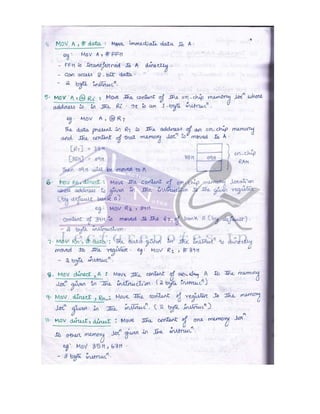 MOV A, # data : Move immediate data to A.
eg: MOV A, # FFH
- FFH is transferred to A directly.
- Can access 8-bit data.
- 2 byte instrucn.
5. MOV A, @Ri : Move the content of the on-chip memory locn whose
address is in the Ri. It is an 1-byte instrucn.
eg: MOV A, @R1
The data present in R1 is the address of an on-chip memory
and the content of that memory locn is moved to A.
on-chip
RAM
Then will be moved to A
6. MOV Rn, direct : Move the content of on chip memory location
whose address is given in the instruction to the given register
(by default bank 0)
eg: MOV R2,
content of is moved to the of bank 0 (by default).
- 2 byte instruction.
7. MOV : The data given in the instrucn is directly
moved to the register. eg: MOV R2, #
- 2 byte instrucn.
8. MOV direct, A : Move the content of A to the memory
locn given in the instruction. (2 byte instrucn)
9. MOV direct, Rn : Move the content of register to the memory
locn given in the instrucn. (2 byte instrucn)
MOV direct, direct : Move the content of one memory locn
to other memory locn given in the instrucn.
eg: MOV 35H, 67H
- 3 byte instrucn.